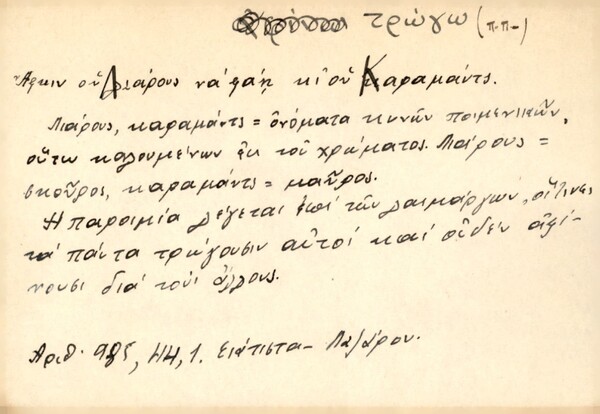 τρώγω (π.π-)
Ἄρκιν οὑ Λιάρους νά φάῃ κι οὑ Καραμάντς.
Λιάρους, καραμάντς = ὀνόματα κυνῶν ποιμενικῶν,
οὕτω καλουμένων ἐκ τοῦ χρώματος. Λιάρους =
σκοῦρος, καραμάντς = μαῦρος.
Ἡ παροιμία λέγεται ἐπί τῶν λαιμάργων, οἵτινες
τά πάντα τρώγουσιν αὐτοί καί οὐδέν ἀφί-
νουσι διά τούς ἄλλους.
Ἀριθ. 985, 44, 1. Σιάτιστα - Λαζάρου.